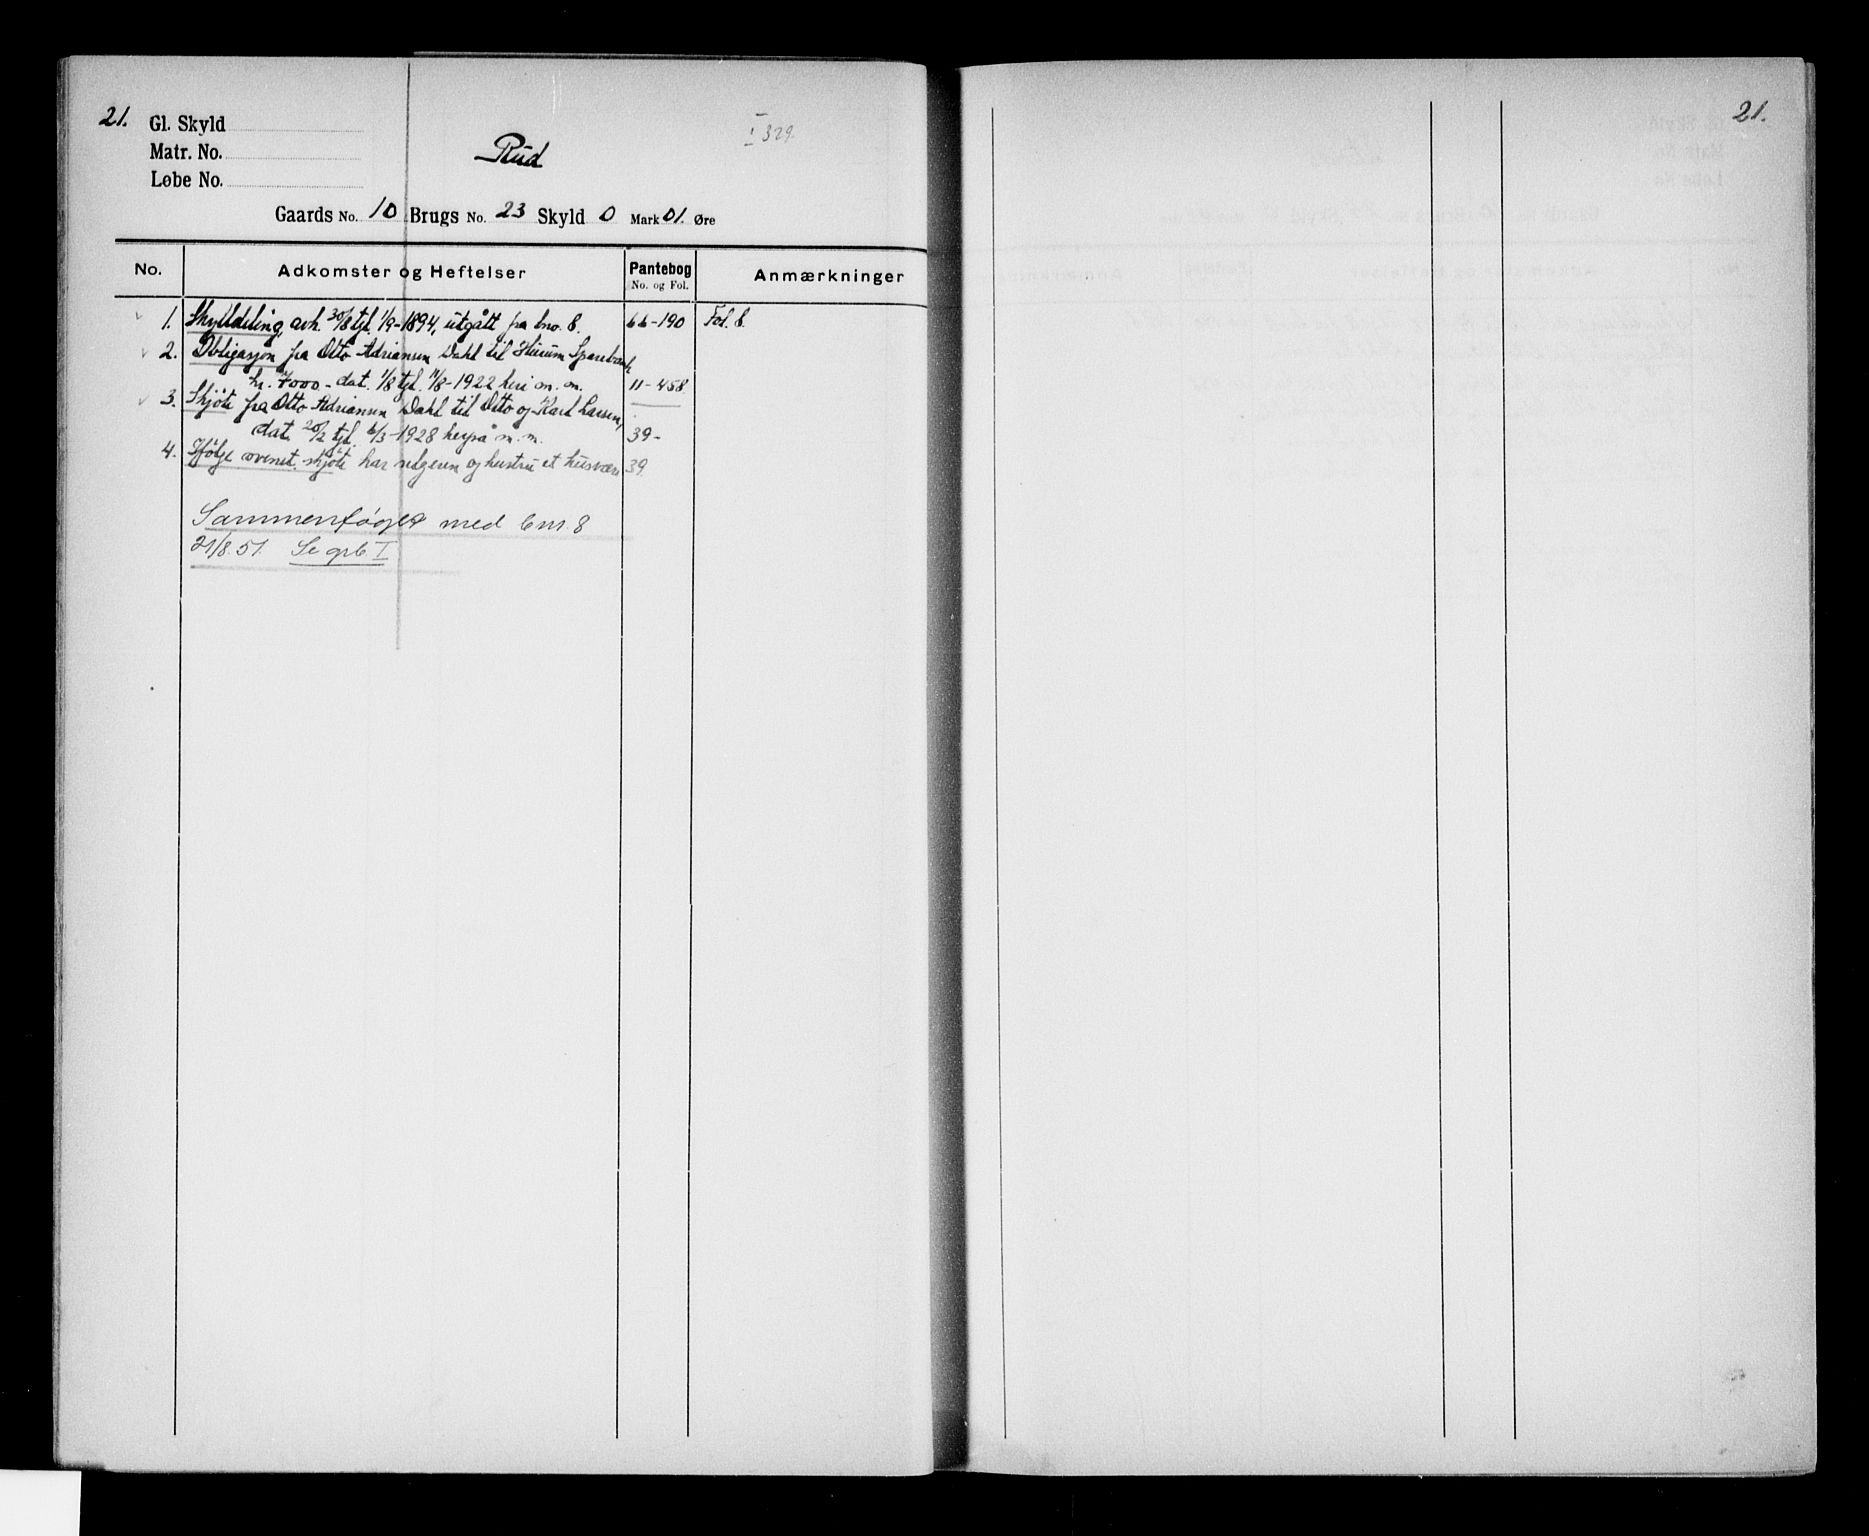 21.
Gl. Skyld
Matr. No.
Løbe No.
Rud
I 329.
Gaards No. 10 Brugs No. 23 Skyld 0 Mark 01. Øre
No. Adkomster og Heftelser Pantebog No. og Fol. Anmærkninger
1. Skylddeling avh. 30/8 tgl. 1/9-1894, utgått fra bno. 8. 66-190 Fol. 6.
2. Obligasjon fra Otto Adriansen Dahl til Hurum Sparebank
kr. 7000- dat. 1/8 tgl. 11/8-1922 heri m. m. 11-458.
3. Skjøte fra Otto Adriansen Dahl til Otto og Karl Larsen,
dat. 20/2 tgl. 6/3-1928 herpå m. m. 39-
4. Ifølge ovennt. skjøte har selgeren og hustru et husvære 39.
Sammenføyet med bnr. 8
21/8.51. Se grb I
21.